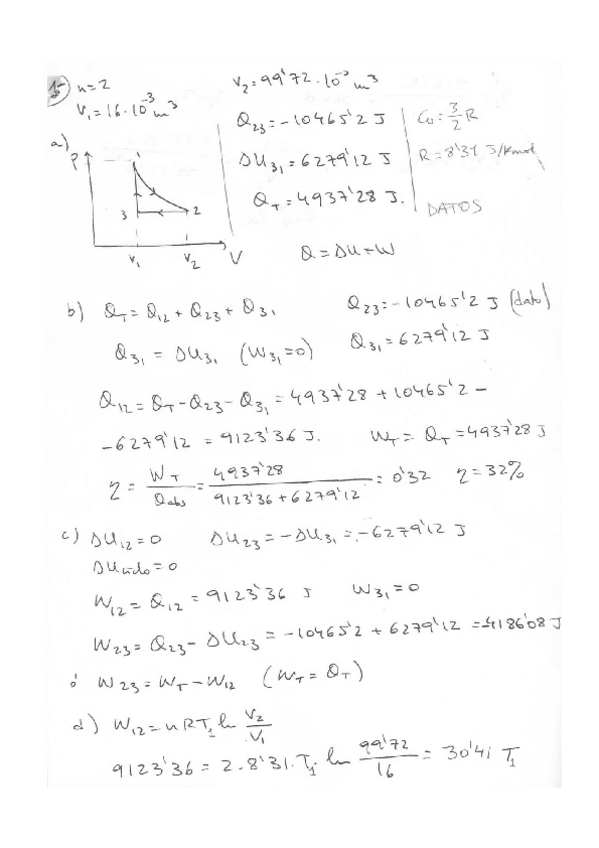 1- n=2
V₁=16·10⁻³ m³
V₂=99'72·10⁻³ m³
Q₂₃=-10465'2 J
ΔU₃₁=6279'12 J
Q_T=4937'28 J.
Cv=3/2 R
R=8'31 J/Kmol
DATOS
a)
P
1
3
2
V₁
V₂
V
Q=ΔU+W
b) Q_T=Q₁₂+Q₂₃+Q₃₁ Q₂₃=-10465'2 J (dato)
Q₃₁=ΔU₃₁ (W₃₁=0) Q₃₁=6279'12 J
Q₁₂=Q_T-Q₂₃-Q₃₁=4937'28+10465'2-
-6279'12=9123'36 J. W_T=Q_T=4937'28 J
η=W_T/Qabs=4937'28/(9123'36+6279'12)=0'32 η=32%
c) ΔU₁₂=0 ΔU₂₃=-ΔU₃₁=-6279'12 J
ΔUciclo=0
W₁₂=Q₁₂=9123'36 J W₃₁=0
W₂₃=Q₂₃-ΔU₂₃=-10465'2+6279'12=-4186'08 J
ó W₂₃=W_T-W₁₂ (W_T=Q_T)
d) W₁₂=nRT₁ ln V₂/V₁
9123'36=2·8'31·T₁ ln 99'72/16=30'41 T₁